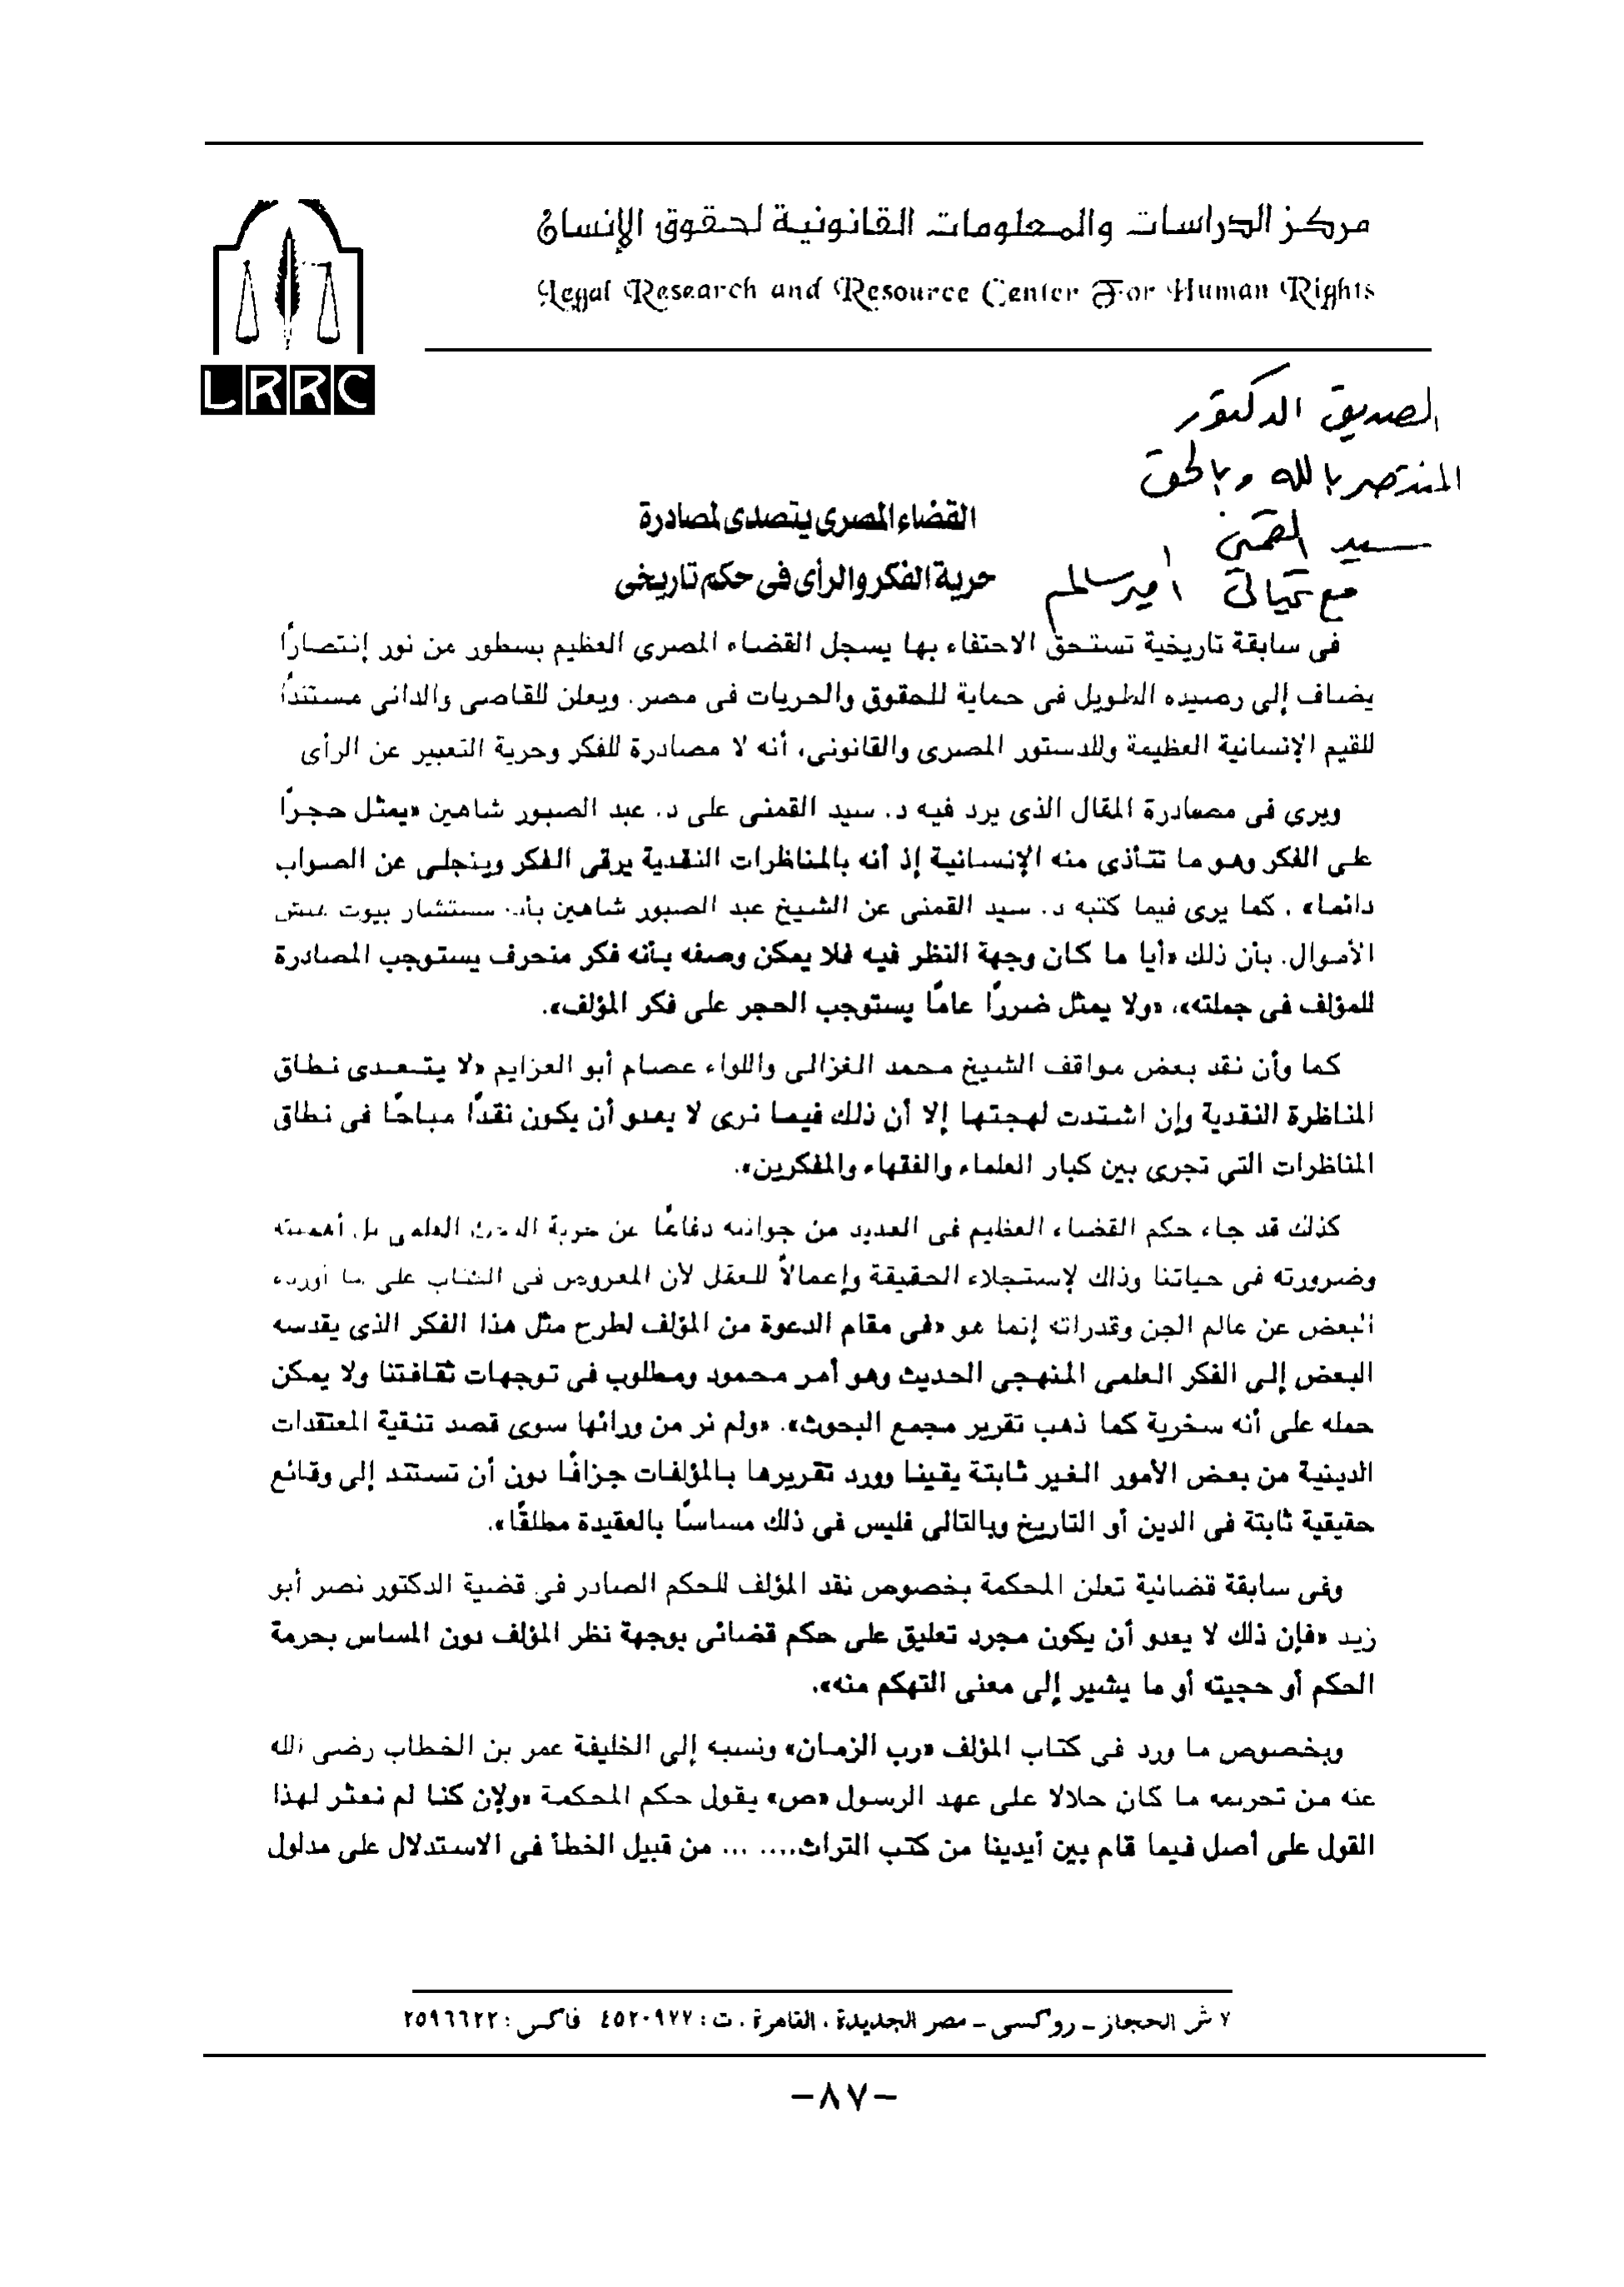 مركز الدراسات والمعلومات القانونية لحقوق الإنسان
Legal Research and Resource Center For Human Rights
LRRC
الصديق الدكتور
المنتصر بالله وبالحق
سيد القمنى
مع تحياتى أمير سالم
القضاء المصرى يتصدى لمصادرة
حرية الفكر والرأى فى حكم تاريخى
فى سابقة تاريخية تستحق الاحتفاء بها يسجل القضاء المصرى العظيم بسطور من نور إنتصارًا
يضاف إلى رصيده الطويل فى حماية للحقوق والحريات فى مصر. ويعلن للقاصى والدانى مستندًا
للقيم الإنسانية العظيمة وللدستور المصرى والقانونى، أنه لا مصادرة للفكر وحرية التعبير عن الرأى
ويرى فى مصادرة المقال الذى يرد فيه د. سيد القمنى على د. عبد الصبور شاهين «يمثل حجرًا
على الفكر وهو ما تتأذى منه الإنسانية إذ أنه بالمناظرات النقدية يرقى الفكر وينجلى عن الصواب
دائما» . كما يرى فيما كتبه د. سيد القمنى عن الشيخ عبد الصبور شاهين بأنه مستشار بيوت غش
الأموال. بأن ذلك «أيا ما كان وجهة النظر فيه فلا يمكن وصفه بأنه فكر منحرف يستوجب المصادرة
للمؤلف فى جملته»، «ولا يمثل ضررًا عامًا يستوجب الحجر على فكر المؤلف».
كما وأن نقد بعض مواقف الشيخ محمد الغزالى واللواء عصام أبو العزايم «لا يتعدى نطاق
المناظرة النقدية وإن اشتدت لهجتها إلا أن ذلك فيما نرى لا يعدو أن يكون نقدًا مباحًا فى نطاق
المناظرات التي تجرى بين كبار العلماء والفقهاء والمفكرين».
كذلك قد جاء حكم القضاء العظيم فى العديد من جوانبه دفاعًا عن حرية البحث العلمى بل أهميته
وضرورته فى حياتنا وذلك لإستجلاء الحقيقة وإعمالاً للعقل لأن المعروض فى الكتاب على ما أورده
البعض عن عالم الجن وقدراته إنما هو «فى مقام الدعوة من المؤلف لطرح مثل هذا الفكر الذى يقدسه
البعض إلى الفكر العلمى المنهجى الحديث وهو أمر محمود ومطلوب فى توجهات ثقافتنا ولا يمكن
حمله على أنه سخرية كما ذهب تقرير مجمع البحوث». «ولم نر من ورائها سوى قصد تنقية المعتقدات
الدينية من بعض الأمور الغير ثابتة يقينا وورد تقريرها بالمؤلفات جزافًا دون أن تستند إلى وقائع
حقيقية ثابتة فى الدين أو التاريخ وبالتالى فليس فى ذلك مساسًا بالعقيدة مطلقًا».
وفى سابقة قضائية تعلن المحكمة بخصوص نقد المؤلف للحكم الصادر فى قضية الدكتور نصر أبو
زيد «فإن ذلك لا يعدو أن يكون مجرد تعليق على حكم قضائى بوجهة نظر المؤلف دون المساس بحرمة
الحكم أو حجيته أو ما يشير إلى معنى التهكم منه».
وبخصوص ما ورد فى كتاب المؤلف «رب الزمان» ونسبه إلى الخليفة عمر بن الخطاب رضى الله
عنه من تحريمه ما كان حلالا على عهد الرسول «ص» يقول حكم المحكمة «ولإن كنا لم نعثر لهذا
القول على أصل فيما قام بين أيدينا من كتب التراث.... ... من قبيل الخطأ فى الاستدلال على مدلول
٧ ش الحجاز - روكسى - مصر الجديدة ، القاهرة . ت : ٤٥٢٠٩٧٧ فاكس : ٢٥٩٦٦٢٢
-٨٧-